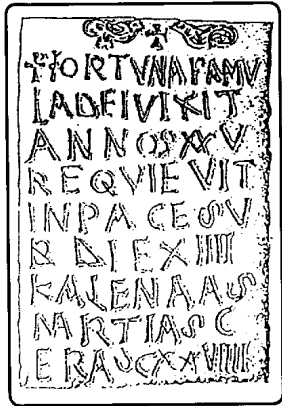 FORTVNA FAMV
LA DEI VIXIT
ANNOS XXV
REQVIEVIT
IN PACE SV
B DIE XIIII
KALENDAS
MARTIAS C
ERA SCXXVIIII